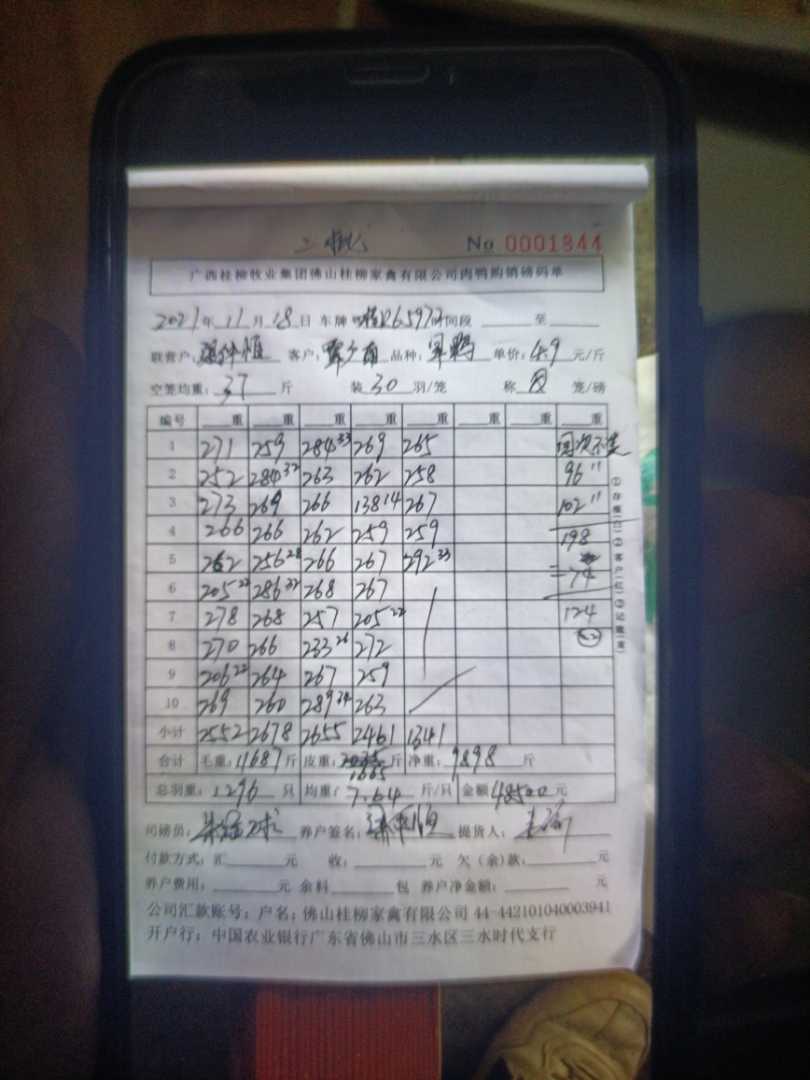 No 0001844
广西桂柳牧业集团佛山桂柳家禽有限公司肉鸭购销磅码单
2021年11月18日 车牌 时间段 至
联营户: 客户: 品种: 单价: 4.9 元/斤
空笼均重: 37 斤 装 30 羽/笼 称 笼/磅
编号 重 重 重 重 重 重 重 重
1 271 259 284 33 269 265
2 252 284 32 263 262 258 96 11
3 273 269 266 138 14 267 102 11
4 266 266 262 259 259 198
5 262 256 28 266 267 292 33 =74
6 205 22 286 32 268 267
7 278 268 257 205 22 124
8 270 266 233 26 272
9 206 22 264 267 259
10 269 260 289 34 263
小计 2552 2678 2655 2461 1341
合计 毛重: 11687 斤 皮重: 斤 净重: 9898 斤
总羽重: 1296 只 均重: 7.64 斤/只 金额 48500 元
司磅员: 养户签名: 提货人:
付款方式: 汇 元 收: 元 欠(余)款: 元
养户费用: 元 余料 包 养户净金额: 元
公司汇款账号: 户名: 佛山桂柳家禽有限公司 44-442101040003941
开户行: 中国农业银行广东省佛山市三水区三水时代支行
①存根(白)②客户(红)③记账(黄)